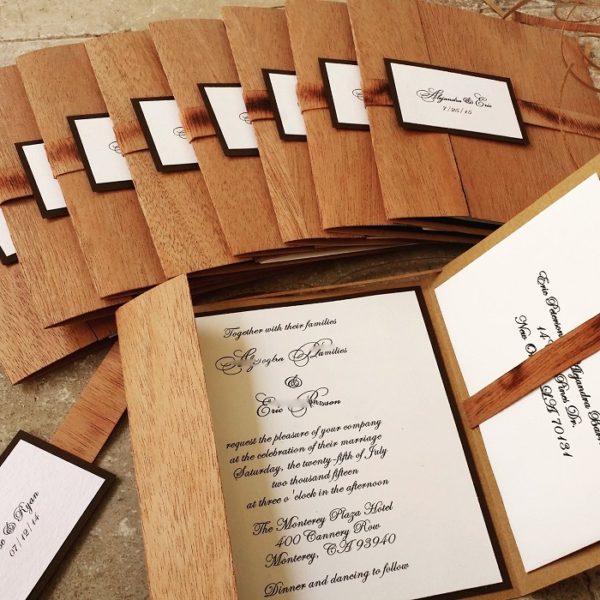 Alejandra & Eric
7/25/15
Together with their families
&
Eric
request the pleasure of your company
at the celebration of their marriage
Saturday, the twenty-fifth of July
two thousand fifteen
at three o'clock in the afternoon
The Monterey Plaza Hotel
400 Cannery Row
Monterey, CA 93940
Dinner and dancing to follow
Eric Alejandra
14 Pines Dr.
New
LA 70131
& Ryan
07/12/14